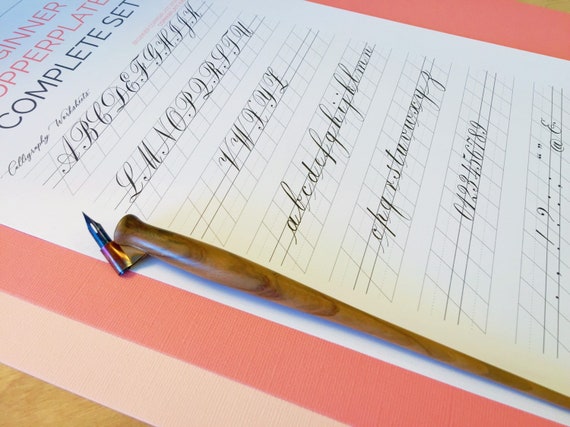 GINNER
OPPERPLATE
COMPLETE SET
Calligraphy Worksheets
ABCDEFGHIJK
LMNOPQRSTU
VWXYZ
abcdefghijklmn
opqrstuvwxyz
0123456789
! ? “ ” @ &